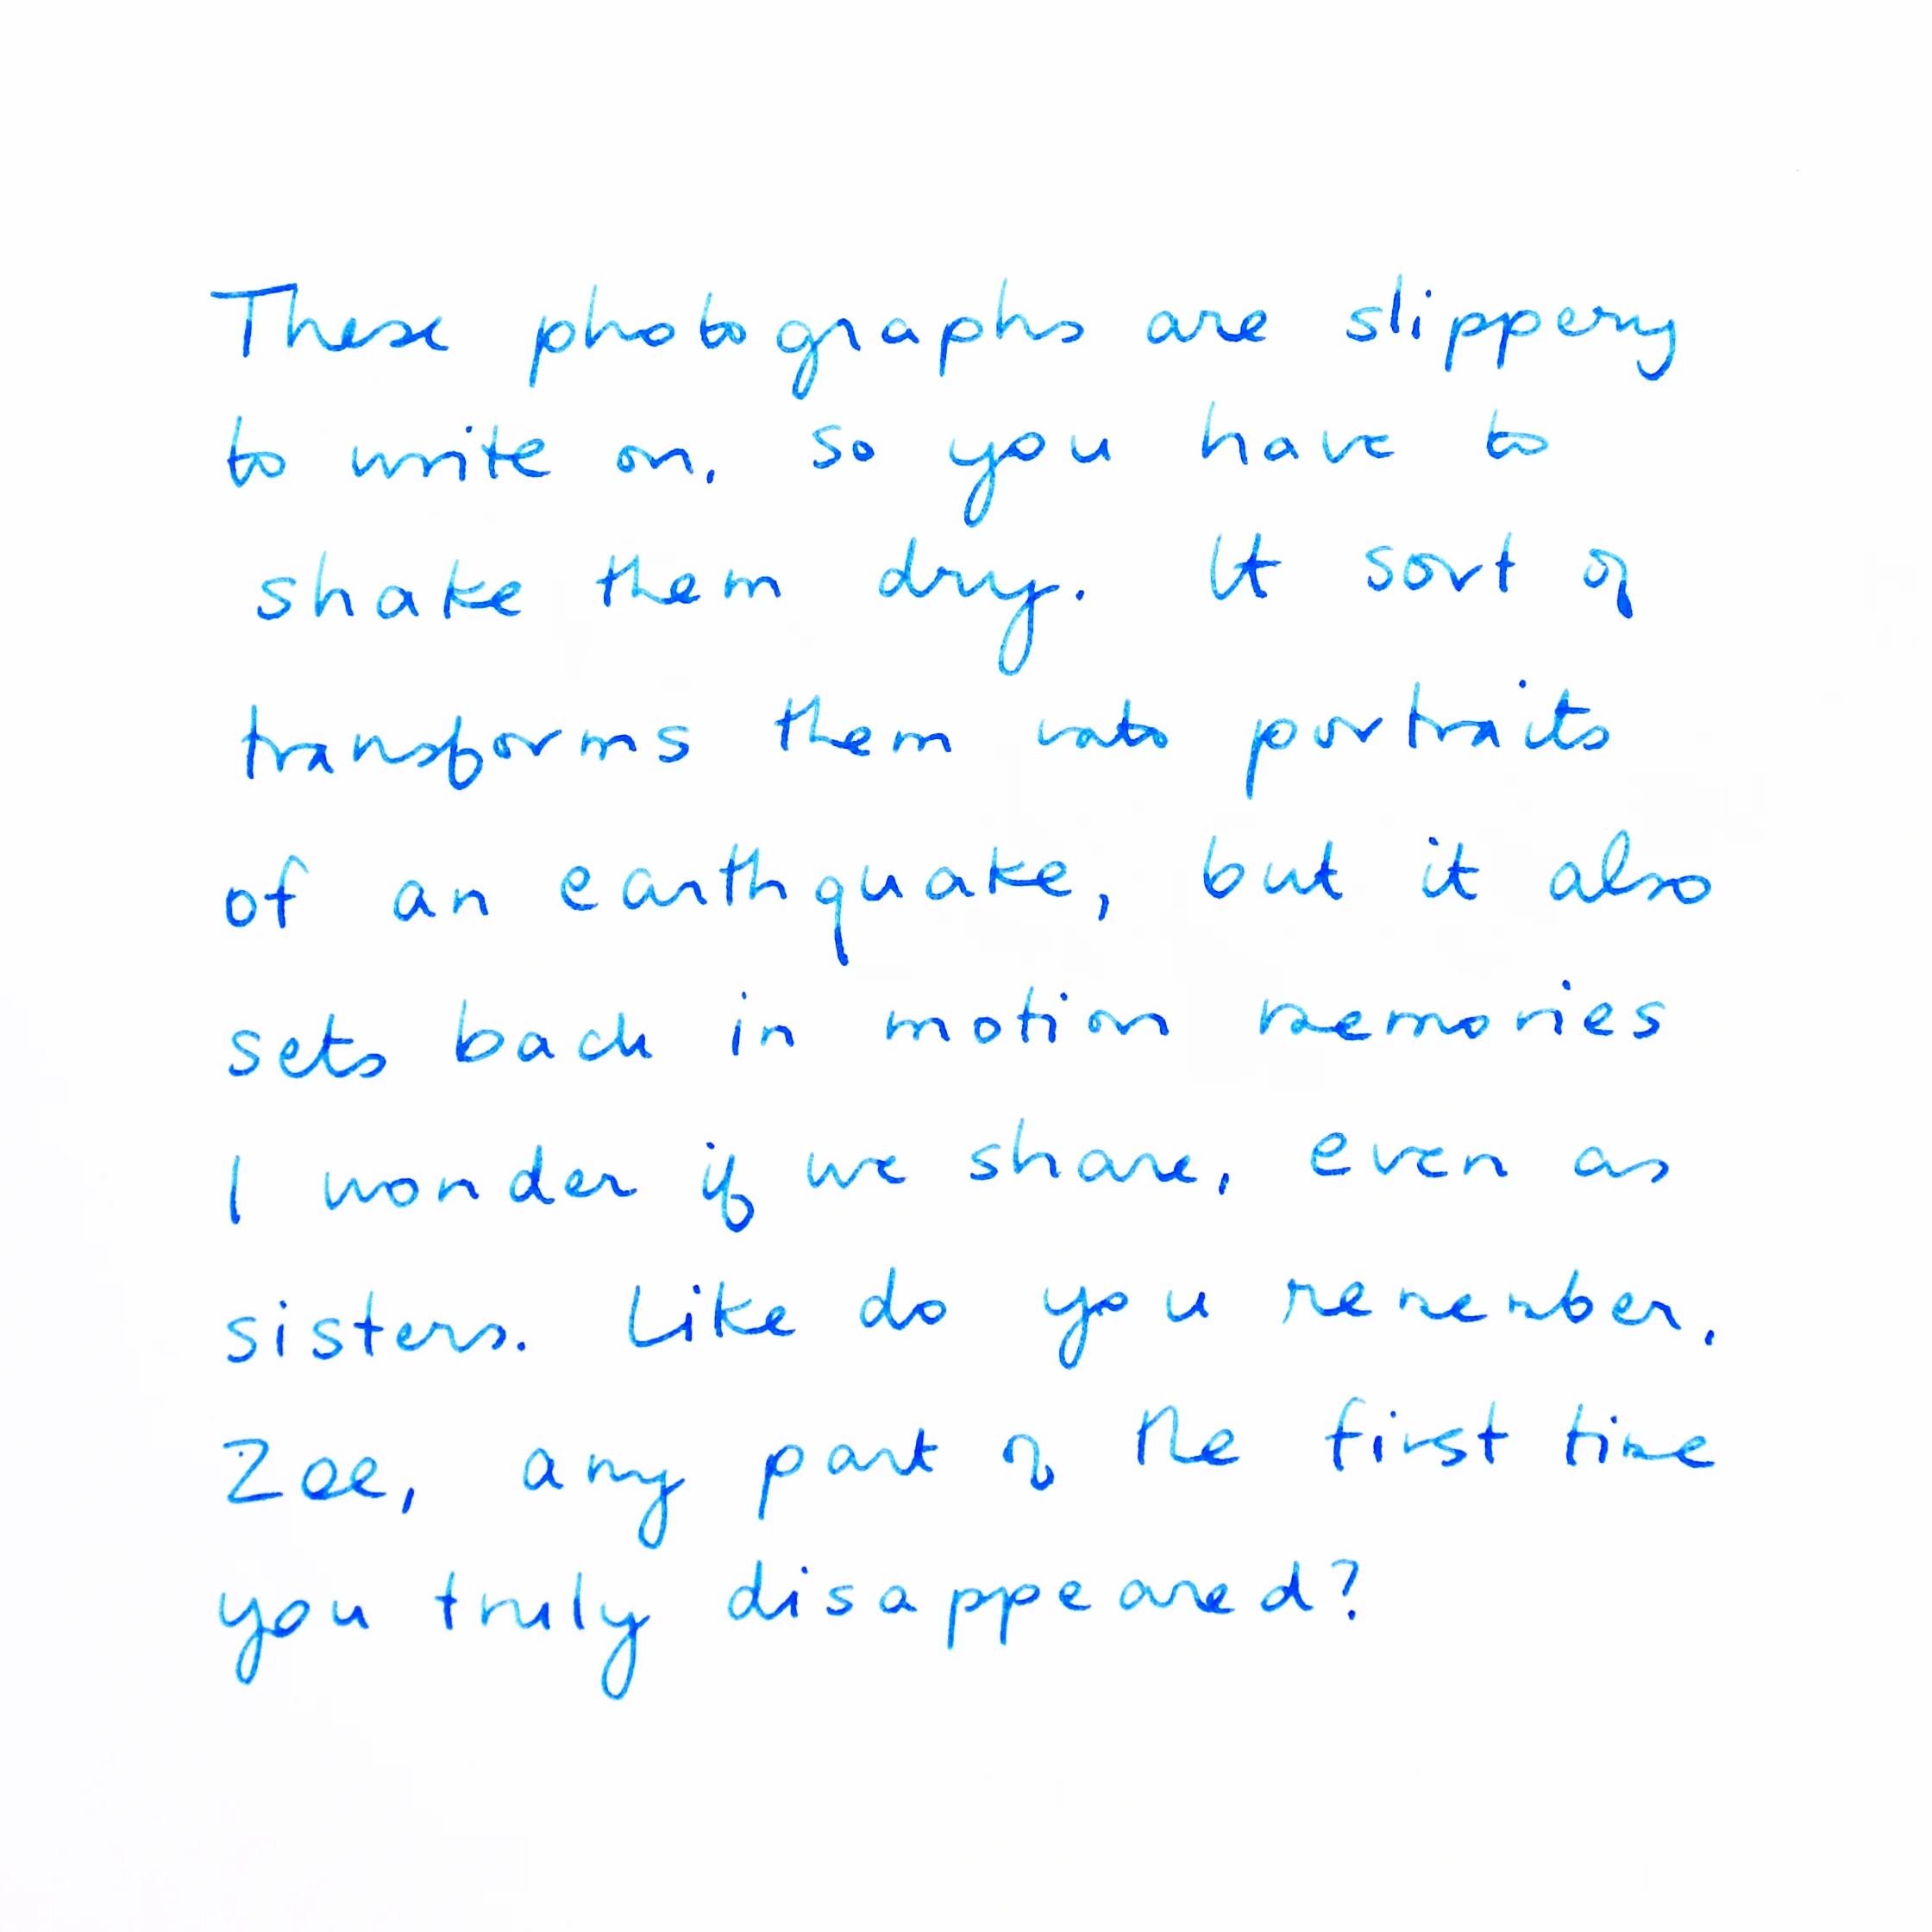 These photographs are slippery
to write on, so you have to
shake them dry. It sort of
transforms them into portraits
of an earthquake, but it also
sets back in motion memories
I wonder if we share, even as
sisters. Like do you remember,
Zoe, any part of the first time
you truly disappeared?